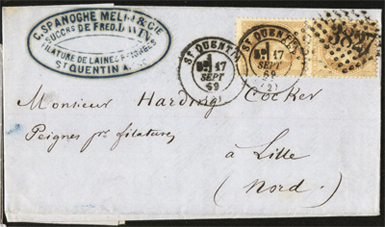 C. SPANOGHE & CIE
SUCCRS DE FRED.
FILATURE DE LAINES
ST QUENTIN
ST QUENTIN
17
SEPT
69
ST QUENTIN
17
SEPT
69
(2)
3827
Monsieur Harding Cocker
Peignes pr. filatures
à Lille
(Nord).